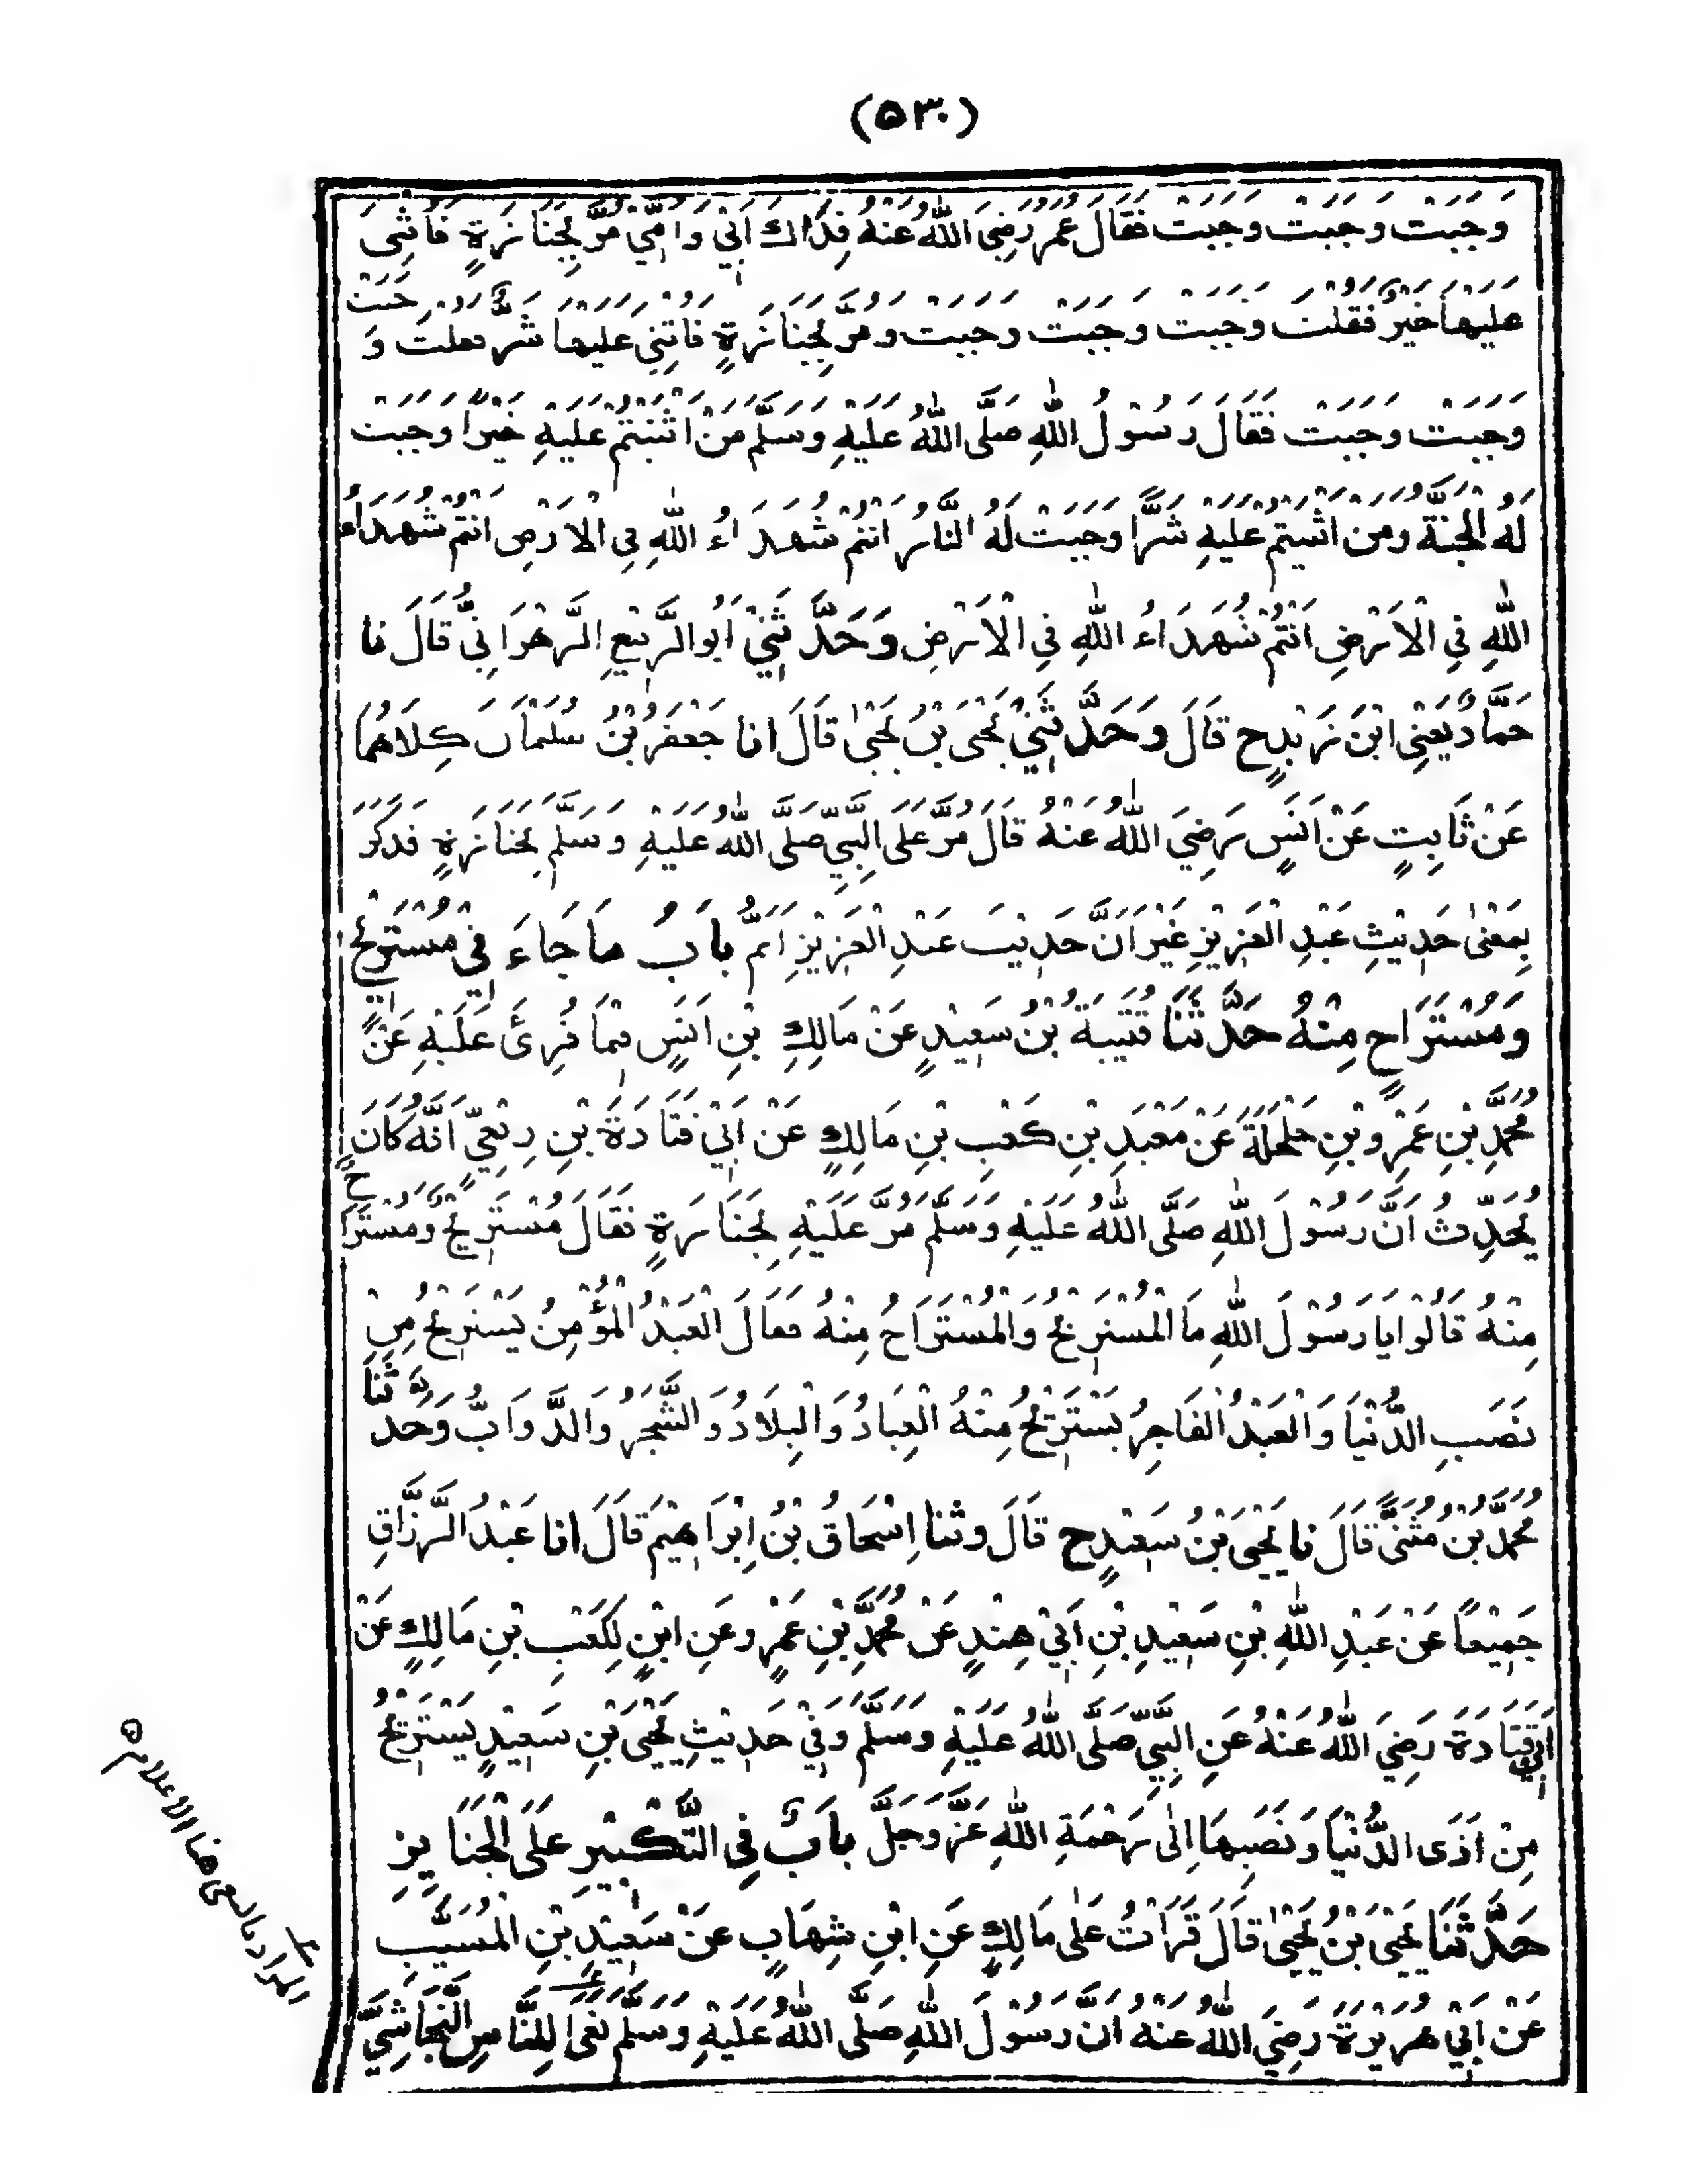 (۵۳۰)
وَجَبَتْ وَجَبَتْ وَجَبَتْ فَقَالَ عُمَرُ رَضِيَ اللّٰهُ عَنْهُ فِدَاكَ اَبِيْ وَاُمِّيْ مُرَّ بِجَنَازَةٍ فَاُثْنِيَ
عَلَيْهَا خَيْرٌ فَقُلْتَ وَجَبَتْ وَجَبَتْ وَجَبَتْ وَمُرَّ بِجَنَازَةٍ فَاُثْنِيَ عَلَيْهَا شَرٌّ فَقُلْتَ وَجَبَتْ
وَجَبَتْ وَجَبَتْ فَقَالَ رَسُوْلُ اللّٰهِ صَلَّى اللّٰهُ عَلَيْهِ وَسَلَّمَ مَنْ اَثْنَيْتُمْ عَلَيْهِ خَيْرًا وَجَبَتْ
لَهُ الْجَنَّةُ وَمَنْ اَثْنَيْتُمْ عَلَيْهِ شَرًّا وَجَبَتْ لَهُ النَّارُ اَنْتُمْ شُهَدَاءُ اللّٰهِ فِي الْاَرْضِ اَنْتُمْ شُهَدَاءُ
اللّٰهِ فِي الْاَرْضِ اَنْتُمْ شُهَدَاءُ اللّٰهِ فِي الْاَرْضِ وَحَدَّثَنِيْ اَبُو الرَّبِيْعِ الزَّهْرَانِيُّ قَالَ نا
حَمَّادٌ يَعْنِي ابْنَ زَيْدٍ ح قَالَ وَحَدَّثَنِيْ يَحْيَى بْنُ يَحْيٰى قَالَ انا جَعْفَرُ بْنُ سُلَيْمَانَ كِلَاهُمَا
عَنْ ثَابِتٍ عَنْ اَنَسٍ رَضِيَ اللّٰهُ عَنْهُ قَالَ مُرَّ عَلَى النَّبِيِّ صَلَّى اللّٰهُ عَلَيْهِ وَسَلَّمَ بِجَنَازَةٍ فَذَكَرَ
بِمَعْنٰى حَدِيْثِ عَبْدِ الْعَزِيْزِ غَيْرَ اَنَّ حَدِيْثَ عَبْدِ الْعَزِيْزِ اَتَمُّ بَابُ مَا جَاءَ فِيْ مُسْتَرِيْحٍ
وَمُسْتَرَاحٍ مِنْهُ حَدَّثَنَا قُتَيْبَةُ بْنُ سَعِيْدٍ عَنْ مَالِكِ بْنِ اَنَسٍ فِيْمَا قُرِئَ عَلَيْهِ عَنْ
مُحَمَّدِ بْنِ عَمْرِو بْنِ حَلْحَلَةَ عَنْ مَعْبَدِ بْنِ كَعْبِ بْنِ مَالِكٍ عَنْ اَبِيْ قَتَادَةَ بْنِ رِبْعِيٍّ اَنَّهُ كَانَ
يُحَدِّثُ اَنَّ رَسُوْلَ اللّٰهِ صَلَّى اللّٰهُ عَلَيْهِ وَسَلَّمَ مُرَّ عَلَيْهِ بِجَنَازَةٍ فَقَالَ مُسْتَرِيْحٌ وَمُسْتَرَاحٌ
مِنْهُ قَالُوْا يَا رَسُوْلَ اللّٰهِ مَا الْمُسْتَرِيْحُ وَالْمُسْتَرَاحُ مِنْهُ فَقَالَ الْعَبْدُ الْمُؤْمِنُ يَسْتَرِيْحُ مِنْ
نَصَبِ الدُّنْيَا وَالْعَبْدُ الْفَاجِرُ يَسْتَرِيْحُ مِنْهُ الْعِبَادُ وَالْبِلَادُ وَالشَّجَرُ وَالدَّوَابُّ وَحَدَّثَنَا
مُحَمَّدُ بْنُ مُثَنَّى قَالَ نا يَحْيَى بْنُ سَعِيْدٍ ح قَالَ وثنا اِسْحَاقُ بْنُ اِبْرَاهِيْمَ قَالَ انا عَبْدُ الرَّزَّاقِ
جَمِيْعًا عَنْ عَبْدِ اللّٰهِ بْنِ سَعِيْدِ بْنِ اَبِيْ هِنْدٍ عَنْ مُحَمَّدِ بْنِ عَمْرٍو عَنِ ابْنٍ لِكَعْبِ بْنِ مَالِكٍ عَنْ
اَبِيْ قَتَادَةَ رَضِيَ اللّٰهُ عَنْهُ عَنِ النَّبِيِّ صَلَّى اللّٰهُ عَلَيْهِ وَسَلَّمَ وَفِيْ حَدِيْثِ يَحْيَى بْنِ سَعِيْدٍ يَسْتَرِيْحُ
مِنْ اَذَى الدُّنْيَا وَنَصَبِهَا اِلٰى رَحْمَةِ اللّٰهِ عَزَّ وَجَلَّ بَابٌ فِي التَّكْبِيْرِ عَلَى الْجَنَايِزِ
حَدَّثَنَا يَحْيَى بْنُ يَحْيٰى قَالَ قَرَأْتُ عَلٰى مَالِكٍ عَنِ ابْنِ شِهَابٍ عَنْ سَعِيْدِ بْنِ الْمُسَيَّبِ
عَنْ اَبِيْ هُرَيْرَةَ رَضِيَ اللّٰهُ عَنْهُ اَنَّ رَسُوْلَ اللّٰهِ صَلَّى اللّٰهُ عَلَيْهِ وَسَلَّمَ نَعَى لِلنَّاسِ النَّجَاشِيَّ
المراد بالنعى هنا الاعلام